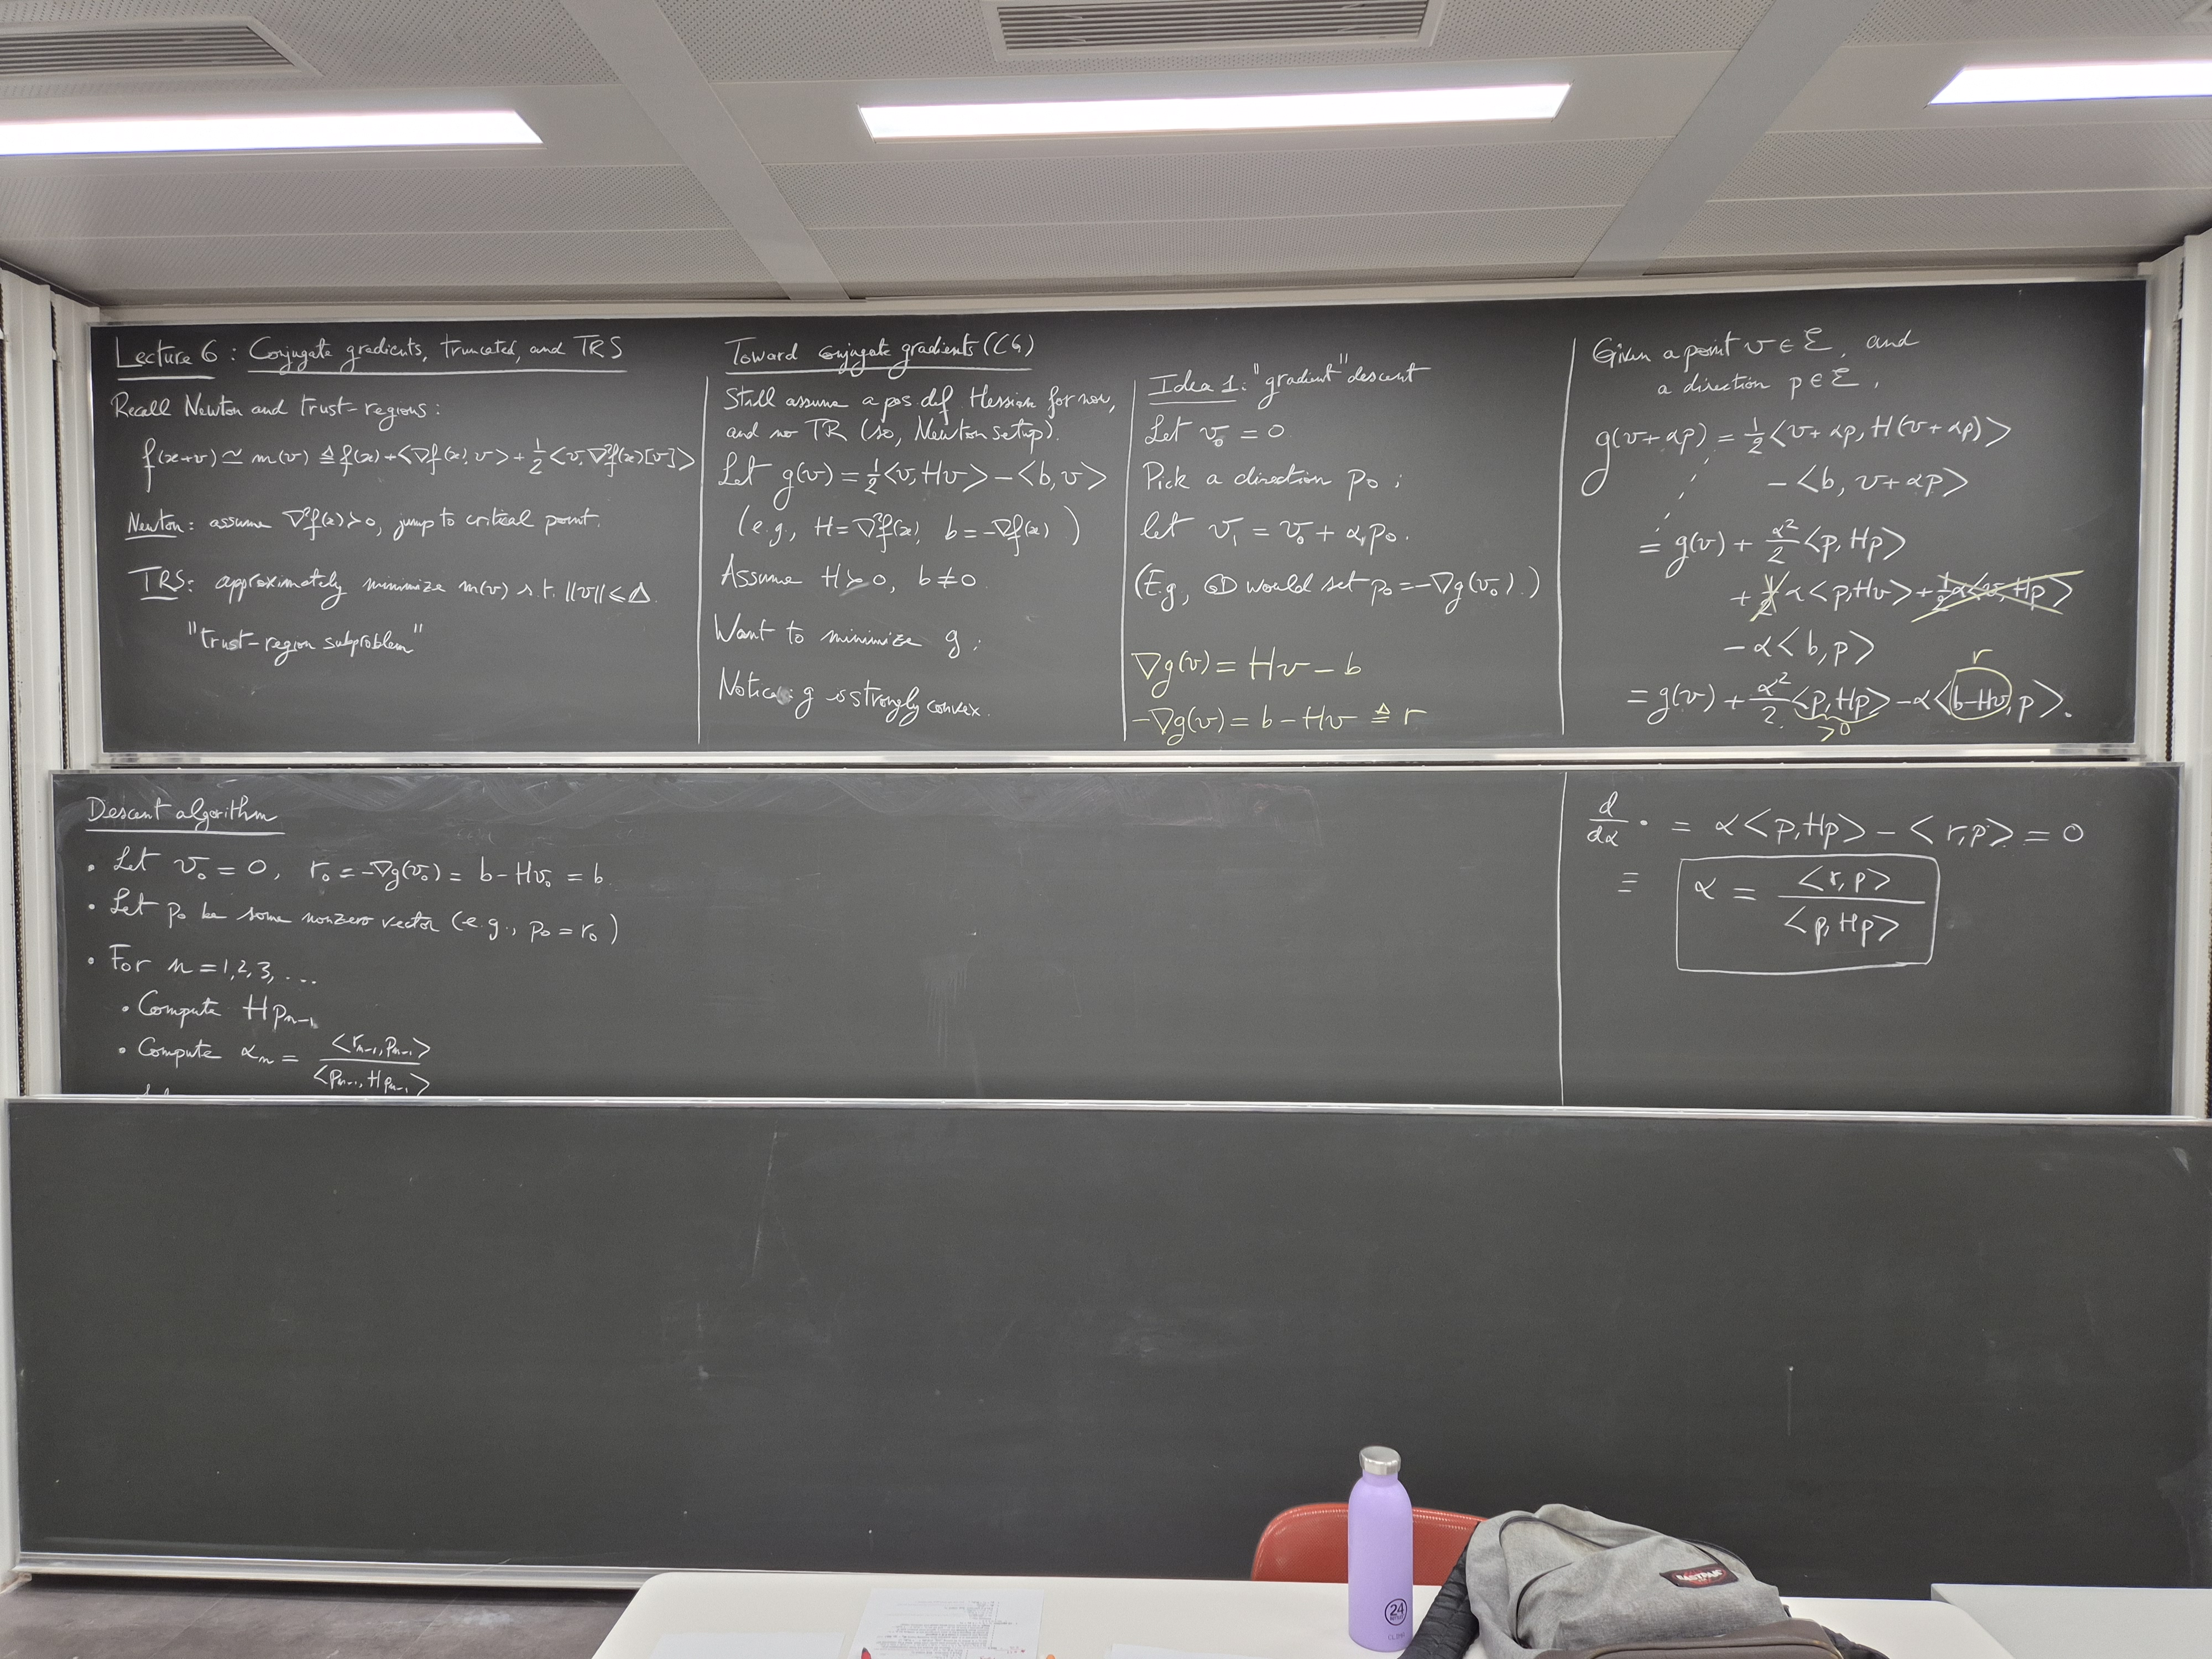 Lecture 6 : Conjugate gradients, truncated, and TRS
Recall Newton and trust-regions :
f(x+v) ≃ m(v) ≜ f(x) + <∇f(x), v> + 1/2 <v, ∇²f(x)[v]>
Newton : assume ∇²f(x) ≻ 0, jump to critical point.
TRS : approximately minimize m(v) s.t. ||v|| ≤ Δ.
"trust-region subproblem"
Toward conjugate gradients (CG)
Still assume a pos. def Hessian for now,
and no TR (so, Newton setup).
Let g(v) = 1/2 <v, Hv> - <b, v>
(e.g., H = ∇²f(x), b = -∇f(x) )
Assume H ≻ 0, b ≠ 0.
Want to minimize g :
Notice : g is strongly convex.
Idea 1 : "gradient" descent
Let v₀ = 0
Pick a direction p₀ ;
let v₁ = v₀ + α₁p₀.
(E.g, GD would set p₀ = -∇g(v₀).)
∇g(v) = Hv - b
-∇g(v) = b - Hv ≜ r
Given a point v ∈ ℰ, and
a direction p ∈ ℰ,
g(v+αp) = 1/2 <v+αp, H(v+αp)>
- <b, v+αp>
= g(v) + α²/2 <p, Hp>
+ 1/2 α<p, Hv> + 1/2 α<v, Hp>
- α<b, p>
r
= g(v) + α²/2 <p, Hp> - α<b-Hv, p>.
>0
Descent algorithm
• Let v₀ = 0, r₀ = -∇g(v₀) = b - Hv₀ = b
• Let p₀ be some nonzero vector (e.g., p₀ = r₀)
• For n = 1, 2, 3, ...
• Compute Hpₙ₋₁
• Compute αₙ = <rₙ₋₁, pₙ₋₁> / <pₙ₋₁, Hpₙ₋₁>
d/dα • = α<p, Hp> - <r, p> = 0
≡ α = <r, p> / <p, Hp>
EASTPAK
24
BOTTLES
CLIMA